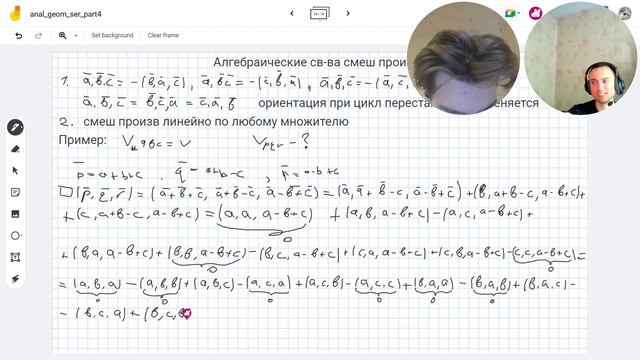 anal_geom_ser_part4
14 / 14
Set background
Clear frame
Алгебраические св-ва смеш прои
1. a̅,b̅,c̅ = -(b̅,a̅,c̅), a̅,b̅,c̅ = -(c̅,b̅,a̅), a̅,b̅,c̅ = -(a̅,c̅,
a̅,b̅,c̅ = b̅,c̅,a̅ = c̅,a̅,b̅ ориентация при цикл переста няется
2. смеш произв линейно по любому множителю
Пример: V abc = V V pqr - ?
p̅ = a+b+c, q̅ = a+b-c, r̅ = a-b+c
□ (p̅,q̅,r̅) = (a̅+b̅+c̅, a̅+b̅-c̅, a̅-b̅+c̅) = (a̅, a̅+b̅-c, a̅-b̅+c̅) + (b, a+b-c, a-b+c) +
+ (c, a+b-c, a-b+c) = (a, a, a-b+c) + (a, b, a-b+c) - (a, c, a-b+c) +
0
+ (b, a, a-b+c) + (b, b, a-b+c) - (b, c, a-b+c) + (c, a, a-b+c) + (c, b, a-b+c) - (c, c, a-b+c) =
0 0
= (a,b,a) - (a,b,b) + (a,b,c) - (a,c,a) + (a,c,b) - (a,c,c) + (b,a,a) - (b,a,b) + (b,a,c) -
0 0 0 0 0 0
- (b,c,a) + (b,c,b